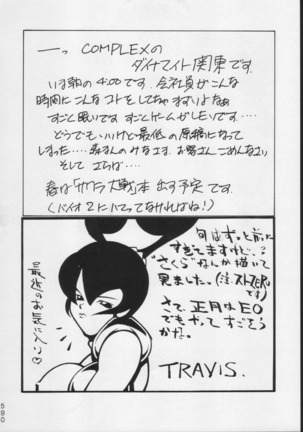 一っ COMPLEXの
ダイナマイト関東です
いま朝の4:00です. 会社員がこんな
時間にこんなコトをしてちゃまずいよなぁ
すごく眠いです すごくゲームがしEいです....
どうでも、いいけど最低の原稿になって
しまった.... 森さんのみなさま、お客さんごめんなさい
そして さらば....
春は「サクラ大戦」本 出す予定 です
(バイオ2にハマってなければね!)
旬はずっと前に
すぎてますけど、
"さくら"なんか描いて
見ました。(注:ストZERO
です)
さて、正月はEO
でもやって すごそう
かな。
TRAVIS.
最後のお気にいり♡
590